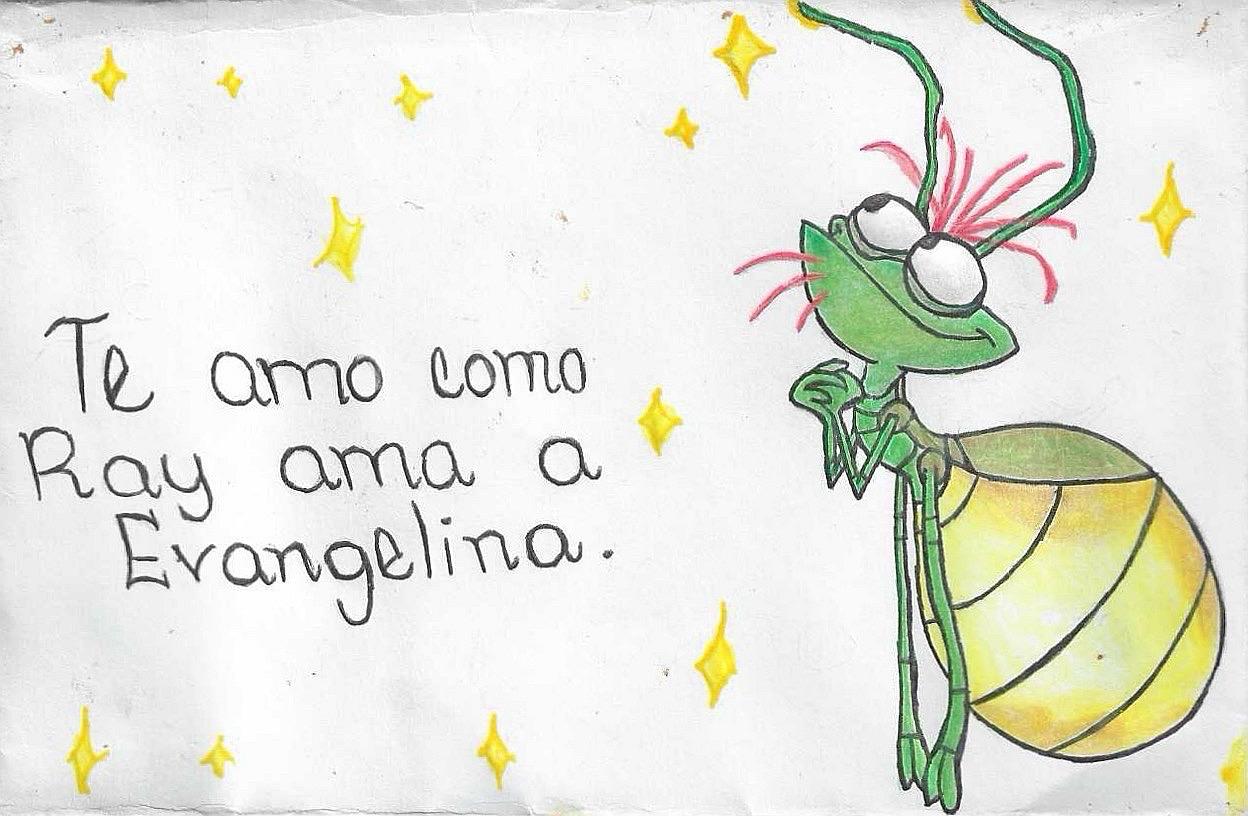 Te amo como
Ray ama a
Evangelina.